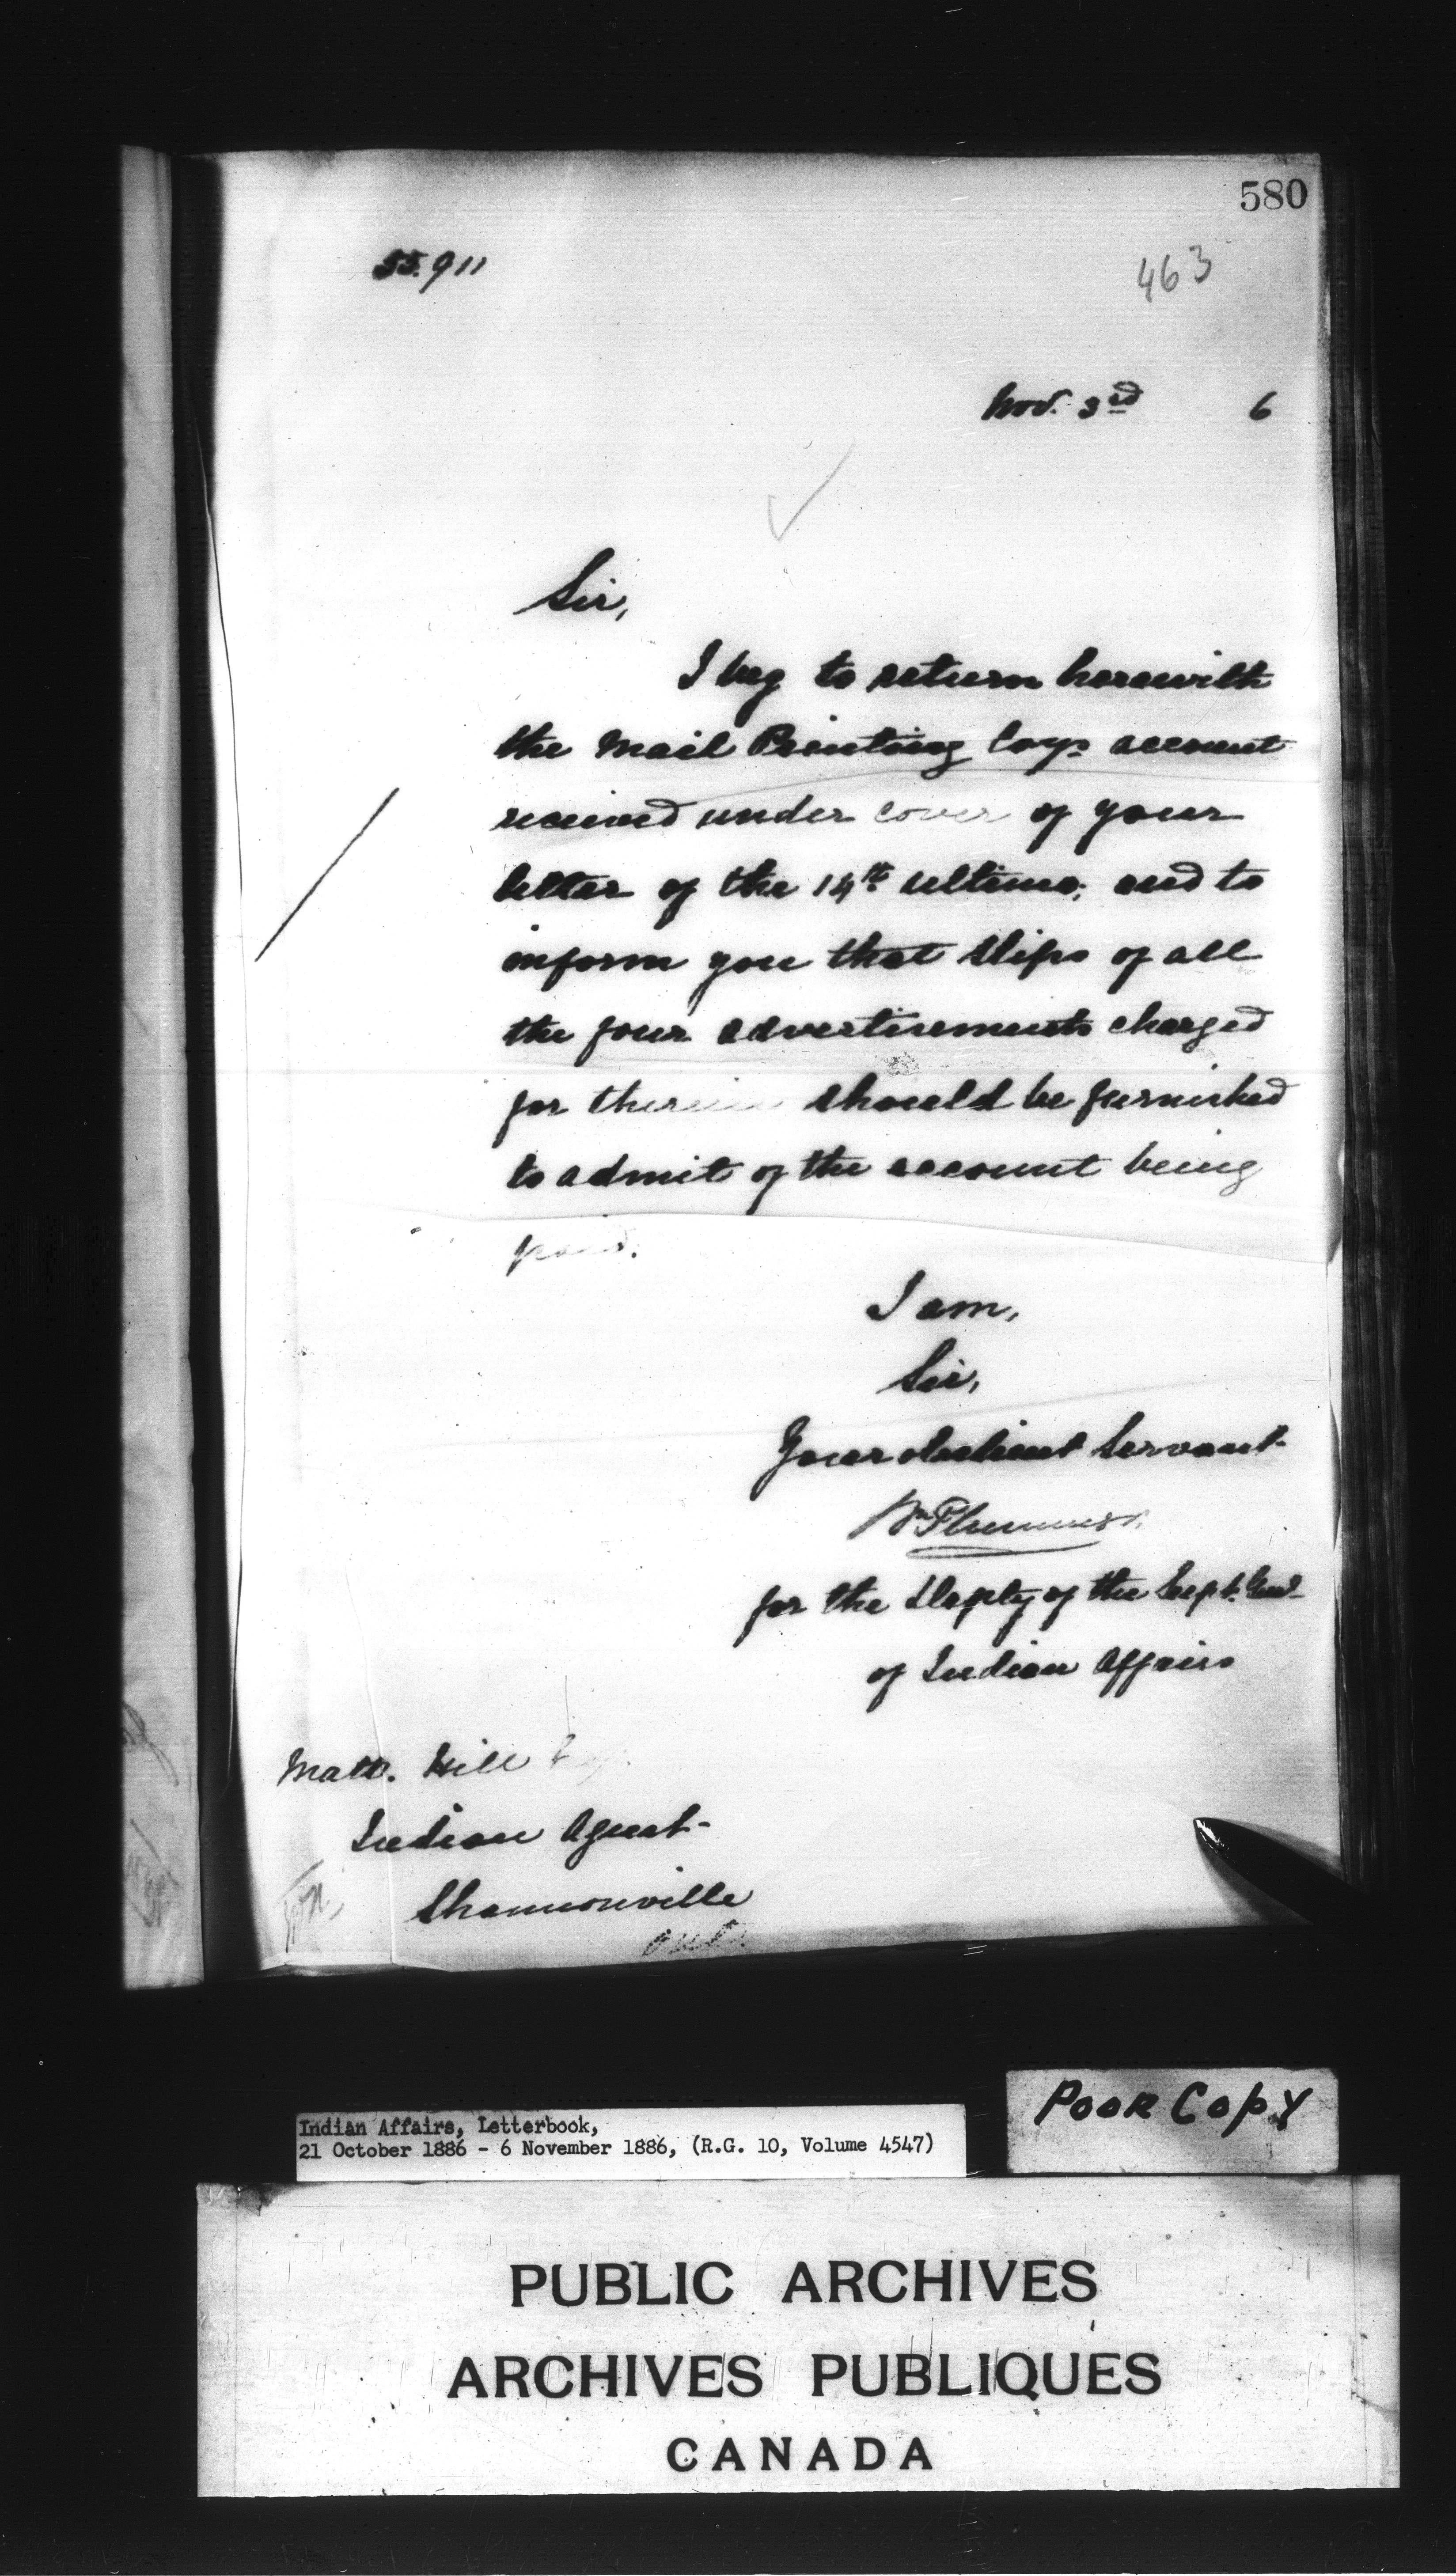 580
55.911
463
Nov. 3rd 6
Sir,
I beg to return herewith
the Mail Printing Coys account
received under cover of your
letter of the 14th ultimo; and to
inform you that slips of all
the four advertisements charged
for therein should be furnished
to admit of the account being
paid.
I am,
Sir,
Your obedient Servant
Wm Plummer
for the Depty of the Supt. Genl
of Indian Affairs
Matt. Hill Esq.
Indian Agent
Shannonville
Ont.
Poor Copy
Indian Affairs, Letterbook,
21 October 1886 - 6 November 1886, (R.G. 10, Volume 4547)
PUBLIC ARCHIVES
ARCHIVES PUBLIQUES
CANADA